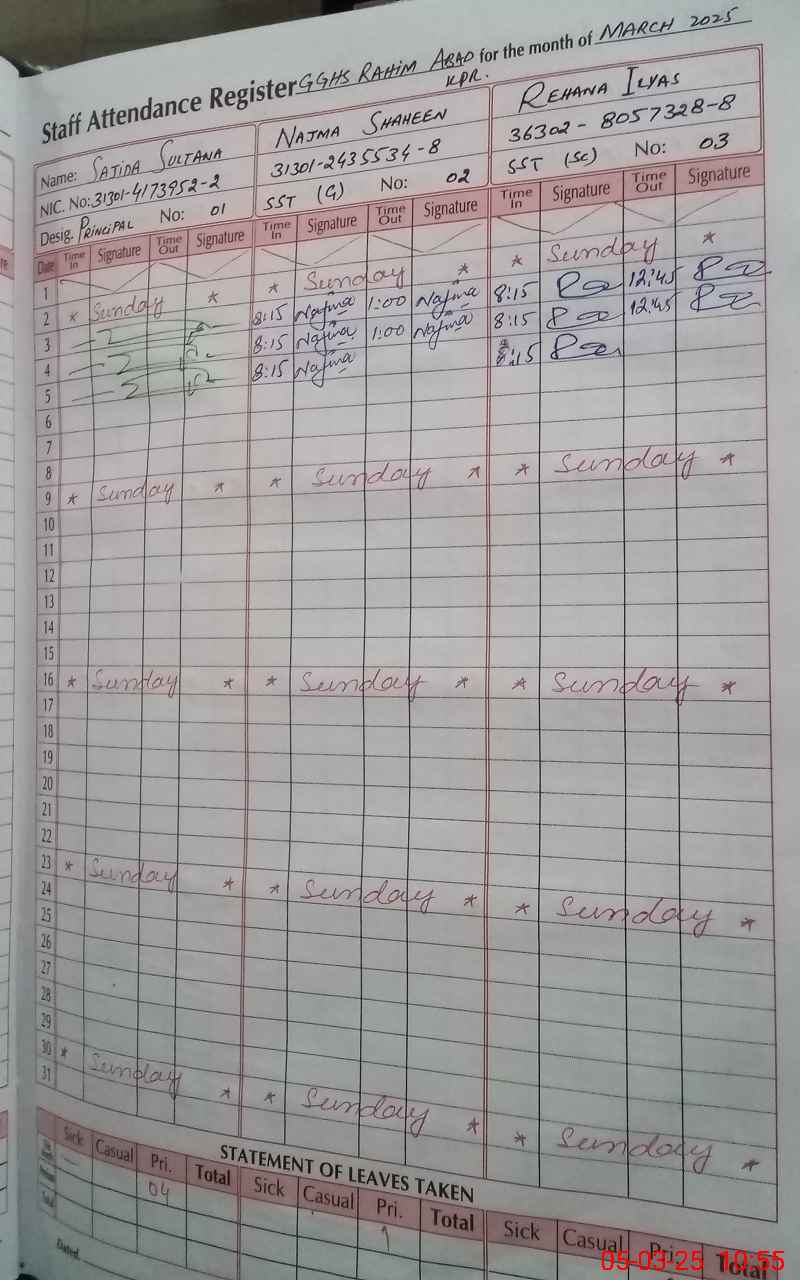 Staff Attendance Register GGHS RAHIM ABAD for the month of MARCH 2025
KPR.
Name: SAJIDA SULTANA NAJMA SHAHEEN REHANA ILYAS
NIC. No: 31301-4173952-2 31301-2435534-8 36302-8057328-8
Desig. PRINCIPAL No: 01 SST (G) No: 02 SST (SC) No: 03
Date Time In Signature Time Out Signature Time In Signature Time Out Signature Time In Signature Time Out Signature
1
2 * Sunday * * Sunday * * Sunday *
3 8:15 Najma 1:00 Najma 8:15 12:45
4 8:15 Najma 1:00 Najma 8:15 12:45
5 8:15 Najma 8:15
6
7
8
9 * Sunday * * Sunday * * Sunday *
10
11
12
13
14
15
16 * Sunday * * Sunday * * Sunday *
17
18
19
20
21
22
23 * Sunday * * Sunday * * Sunday *
24
25
26
27
28
29
30 * Sunday * * Sunday * * Sunday *
31
STATEMENT OF LEAVES TAKEN
Sick Casual Pri. Total Sick Casual Pri. Total Sick Casual Pri. Total
04
Total
Dated
05-03-25 10:55